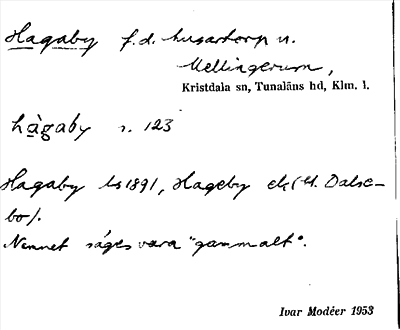 Hagaby f.d. husartorp u.
Mellingerum,
Kristdala sn, Tunaläns hd, Klm. l.
hàgaby s. 123
Hagaby ls 1891, Hageby ek (st. Dalse-
bo).
Namnet säges vara "gammalt".
Ivar Modéer 1953